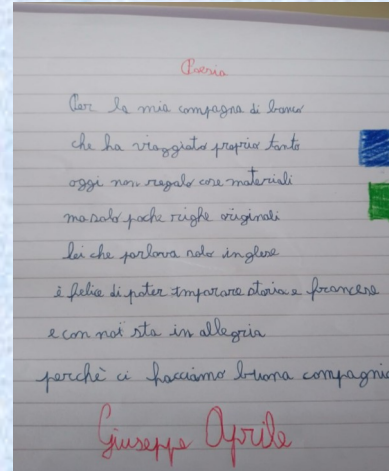 Poesia
Per la mia compagna di banco
che ha viaggiato proprio tanto
oggi non regalo cose materiali
ma solo poche righe originali
lei che parlava solo inglese
è felice di poter imparare storia e francese
e con noi sta in allegria
perchè ci facciamo buona compagnia
Giuseppe Aprile